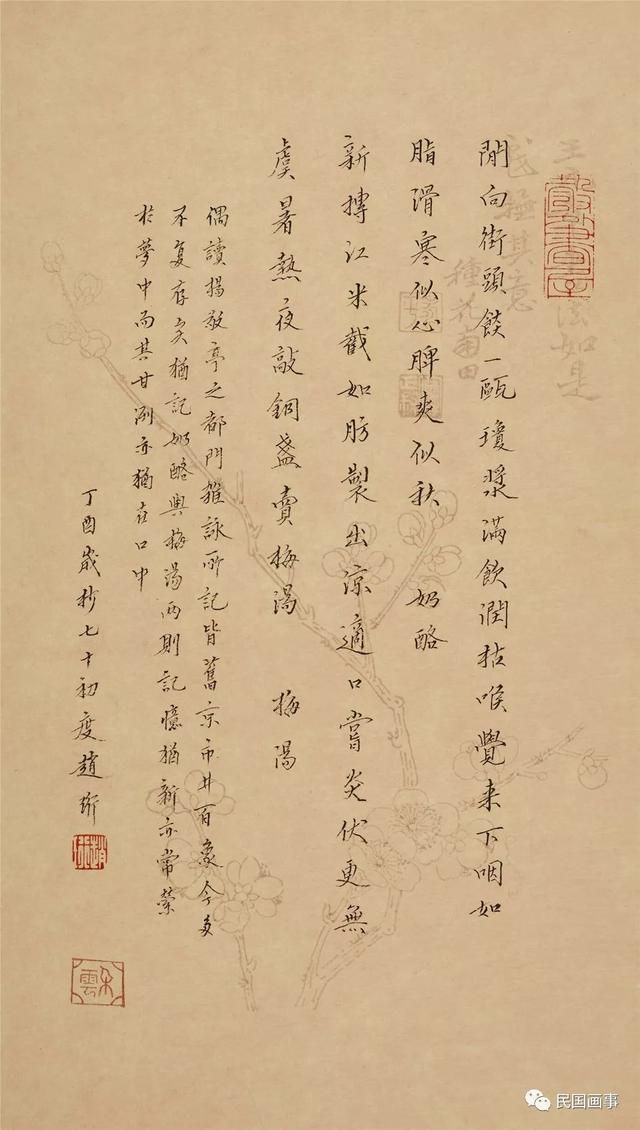 閒向街頭餤一甌瓊漿滿飲潤枯喉覺来下咽如
脂滑寒似心脾爽似秋 奶酪
新摶江米截如肪製出涼適口嘗炎伏更無
虞暑熱夜敲銅盞賣梅湯 梅湯
偶讀楊敬亭之都門雜詠所記皆舊京市井百象今多
不复存矣猶記奶酪與梅湯兩則記憶猶新亦常縈
於夢中而其甘冽亦猶在口中
丁酉歲抄七十初度趙珩
朵雲
民国画事